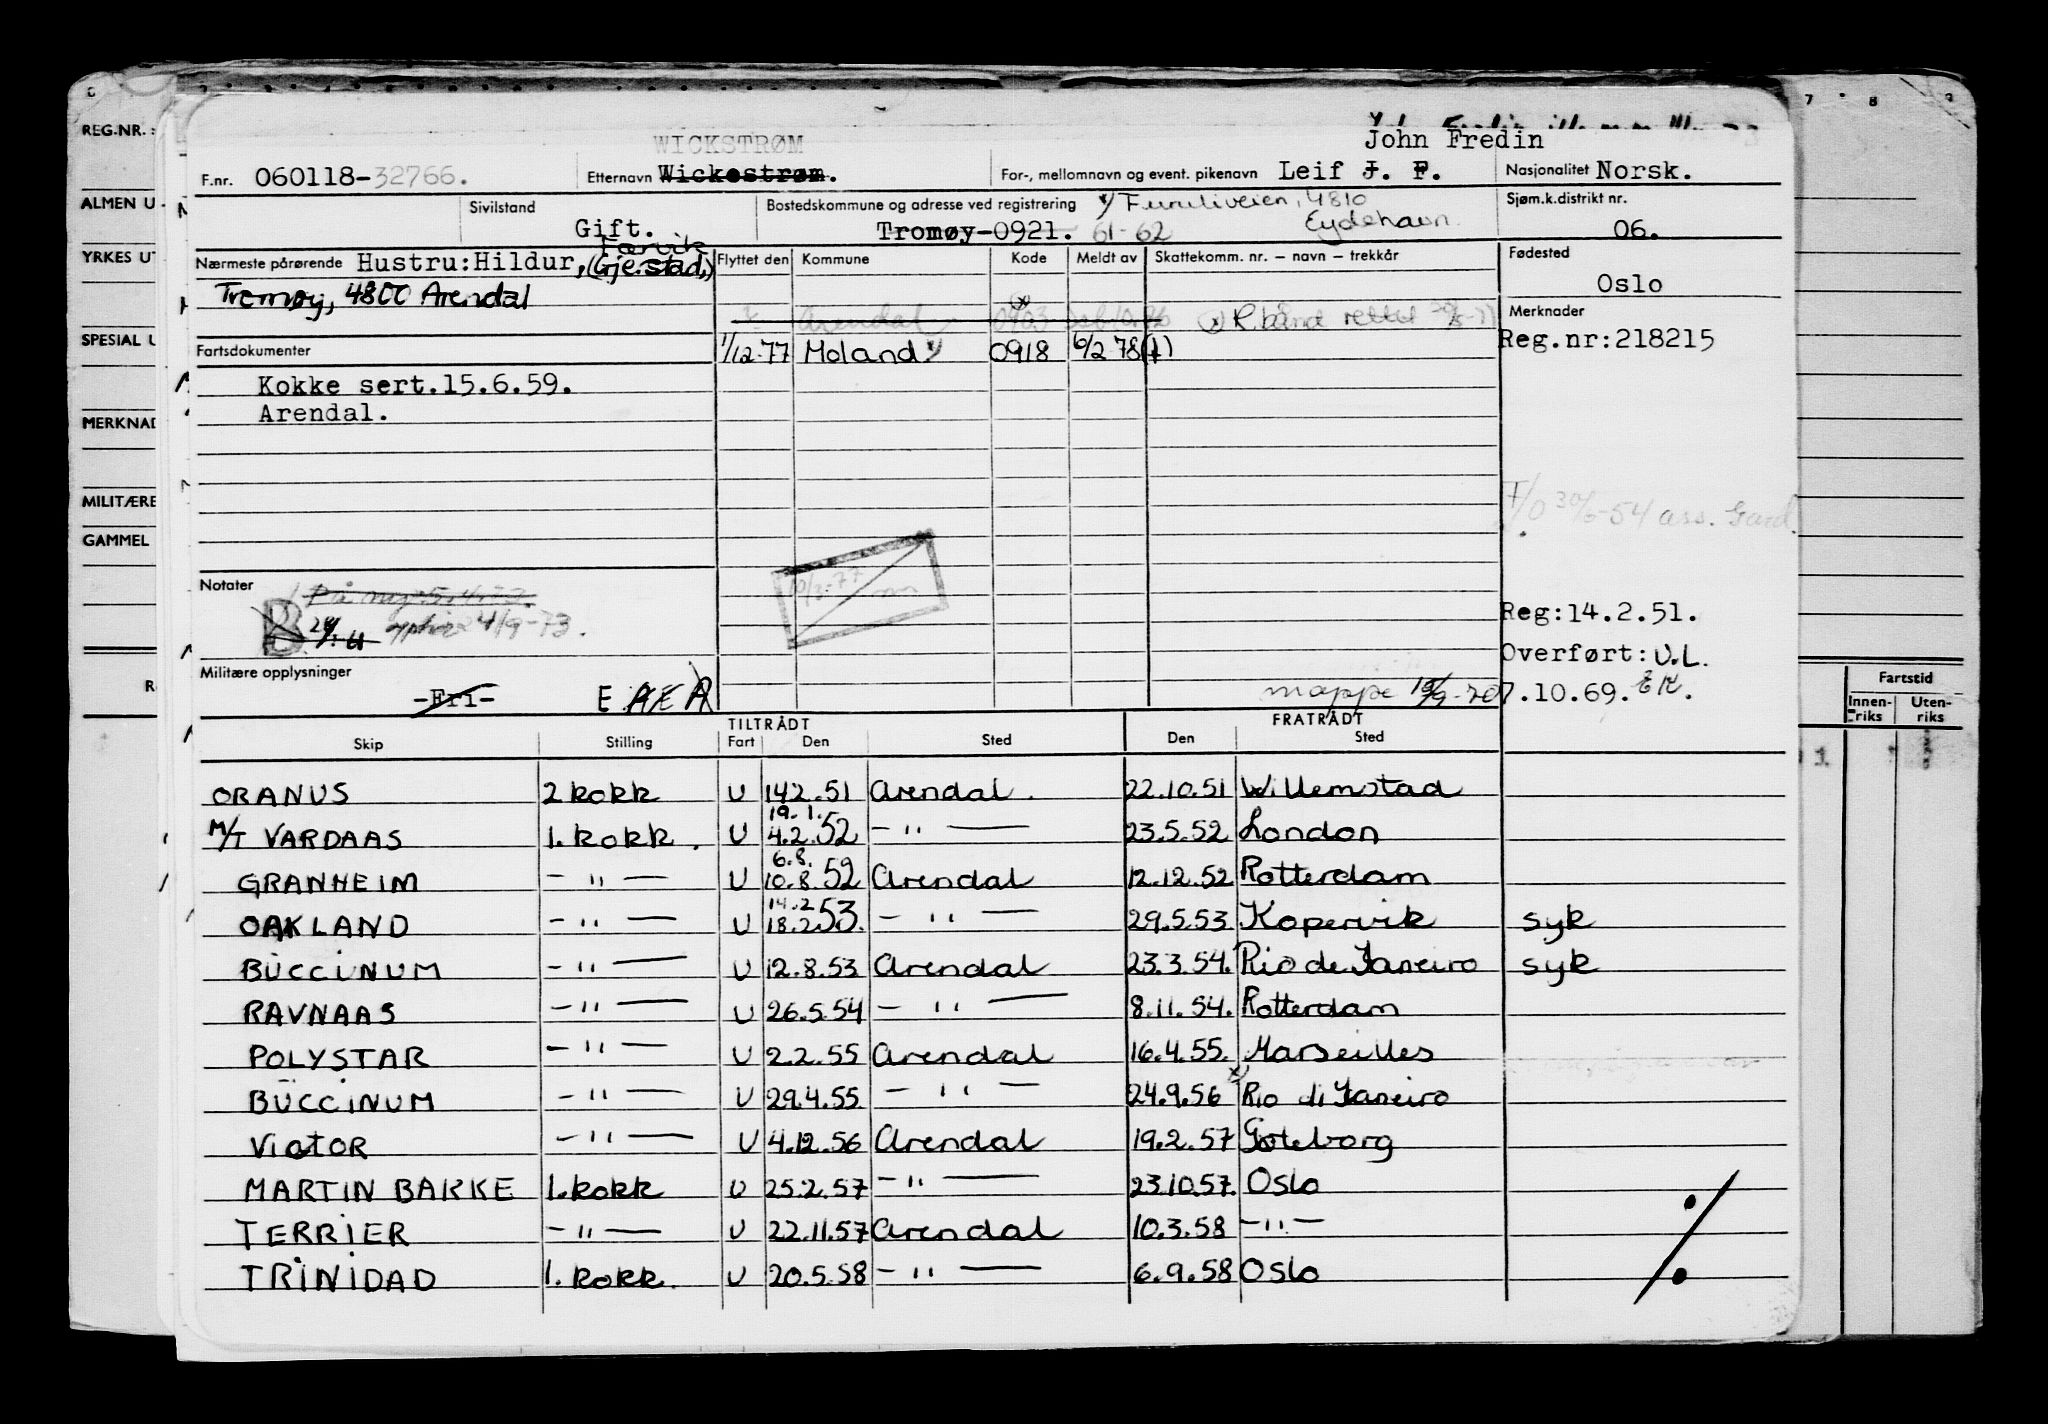 REG.NR.:
ALMEN U
YRKES UT
SPESIAL U
MERKNAD
MILITÆRE
GAMMEL
7 8 9
Fartstid
Innen-riks Uten-riks
WICKSTRØM John Fredin
F.nr. 060118-32766. Etternavn Wickestrøm. For-, mellomnavn og event. pikenavn Leif J. F. Nasjonalitet Norsk.
Sivilstand Gift. Bostedskommune og adresse ved registrering Tromøy-0921. 61-62 Furuliveien, 4810 Eydehavn Sjøm.k.distrikt nr. 06.
Nærmeste pårørende Hustru: Hildur, Færvik (Gjestad,)
Tromøy, 4800 Arendal
Flyttet den Kommune Kode Meldt av Skattekomm. nr. – navn – trekkår
Fødested Oslo
Arendal 0903
Merknader
Reg.nr:218215
Fartsdokumenter 1/12-77 Moland 0918 6/2 78
Kokke sert.15.6.59.
Arendal.
30/6-54 ass. Gard.
Notater
24/9-73.
Reg:14.2.51.
Overført: U.L.
Militære opplysninger -Fri- E
mappe 7.10.69.
TILTRÅDT FRATRÅDT
Skip Stilling Fart Den Sted Den Sted
ORANUS 2 kokk U 14.2.51 Arendal. 22.10.51 Willemstad
19.1.
M/T VARDAAS 1. kokk. U 4.2.52 – " – 23.5.52 London
6.8.
GRANHEIM – " – U 10.8.52 Arendal 12.12.52 Rotterdam
14.2
OAKLAND – " – U 18.2.53. – " – 29.5.53 Kopervik syk
BUCCINUM – " – U 12.8.53 Arendal 23.3.54. Rio de Janeiro syk
RAVNAAS – " – U 26.5.54 – " – 8.11.54. Rotterdam
POLYSTAR – " – U 2.2.55 Arendal 16.4.55. Marseilles
BUCCINUM – " – U 29.4.55 – " – 24.9.56 Rio di Janeiro
VIATOR – " – U 4.12.56 Arendal 19.2.57 Gøteborg
MARTIN BAKKE 1. kokk U 25.2.57 – " – 23.10.57. Oslo
TERRIER – " – U 22.11.57 Arendal 10.3.58 – " –
TRINIDAD 1. kokk. U 20.5.58 – " – 6.9.58 Oslo